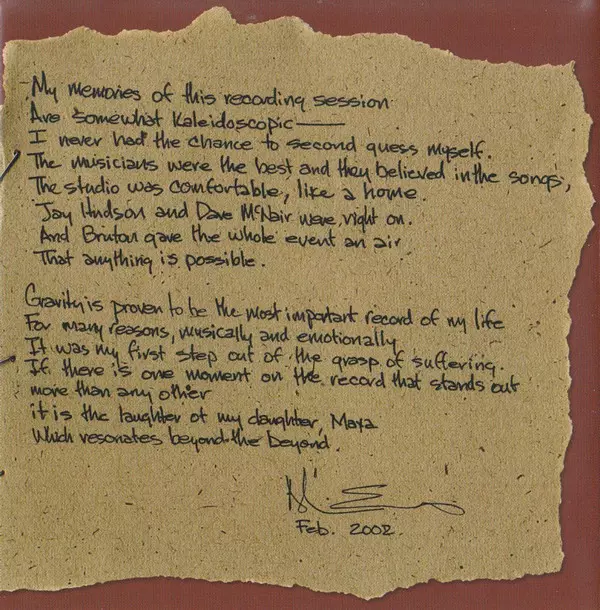 My memories of this recording session
Are somewhat Kaleidoscopic —
I never had the chance to second guess myself.
The musicians were the best and they believed in the songs,
The studio was comfortable, like a home.
Jay Hudson and Dave McNair were right on.
And Bruton gave the whole event an air
That anything is possible.
Gravity is proven to be the most important record of my life
For many reasons, musically and emotionally
It was my first step out of the grasp of suffering.
If there is one moment on the record that stands out
more than any other
it is the laughter of my daughter, Maya
Which resonates beyond the beyond.
Feb. 2002.